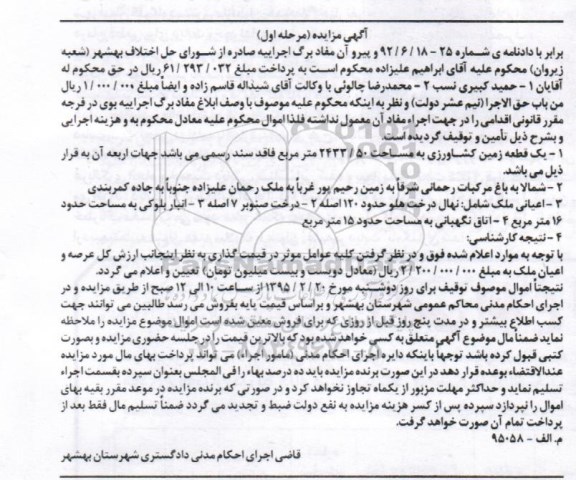 آگهی مزایده (مرحله اول)
برابر با دادنامه ی شماره ۲۵ - ۹۲/۶/۱۸ و پیرو آن مفاد برگ اجراییه صادره از شورای حل اختلاف بهشهر (شعبه
زیروان) محکوم علیه آقای ابراهیم علیزاده محکوم است به پرداخت مبلغ ۶۱/۲۹۳/۰۳۲ ریال در حق محکوم له
آقایان ۱ - حمید کبیری نسب ۲ - محمدرضا چالوئی با وکالت آقای شیداله قاسم زاده و ایضاً مبلغ ۱/۰۰۰/۰۰۰ ریال
من باب حق الاجرا (نیم عشر دولت) و نظر به اینکه محکوم علیه موصوف با وصف ابلاغ مفاد برگ اجراییه بوی در فرجه
مقرر قانونی اقدامی را در جهت اجراء مفاد آن معمول نداشته فلذا اموال محکوم علیه معادل محکوم به و هزینه اجرایی
و بشرح ذیل تأمین و توقیف گردیده است.
۱ - یک قطعه زمین کشاورزی به مساحت ۲۴۳۳/۵۰ متر مربع فاقد سند رسمی می باشد جهات اربعه آن به قرار
ذیل می باشد.
۲ - شمالا به باغ مرکبات رحمانی شرقاً به زمین رحیم پور غرباً به ملک رحمان علیزاده جنوباً به جاده کمربندی
۳ - اعیانی ملک شامل: نهال درخت هلو حدود ۱۲۰ اصله ۲ - درخت صنوبر ۷ اصله ۳ - انبار بلوکی به مساحت حدود
۱۶ متر مربع ۴ - اتاق نگهبانی به مساحت حدود ۱۵ متر مربع
۴ - نتیجه کارشناسی:
با توجه به موارد اعلام شده فوق و در نظر گرفتن کلیه عوامل موثر در قیمت گذاری به نظر اینجانب ارزش کل عرصه و
اعیان ملک به مبلغ ۲/۲۰۰/۰۰۰/۰۰۰ ریال (معادل دویست و بیست میلیون تومان) تعیین و اعلام می گردد.
نتیجتاً اموال موصوف توقیف برای روز دوشنبه مورخ ۱۳۹۵/۲/۲۰ از ساعت ۱۰ الی ۱۲ صبح از طریق مزایده و در
اجرای احکام مدنی محاکم عمومی شهرستان بهشهر و براساس قیمت پایه بفروش می رسد طالبین می توانند جهت
کسب اطلاع بیشتر و در مدت پنج روز قبل از روزی که برای فروش معین شده است اموال موضوع مزایده را ملاحظه
نماید ضمناً مال موضوع آگهی متعلق به کسی خواهد شد بود که بالاترین قیمت را در جلسه حضوری مزایده و بصورت
کتبی قبول کرده باشد توجهاً باینکه دایره اجرای احکام مدنی (مامور اجراء) می تواند پرداخت بهای مال مورد مزایده
عندالاقتضاء بوعده قرار دهد در این صورت برنده مزایده باید ده درصد بهاء رافی المجلس بعنوان سپرده بقسمت اجراء
تسلیم نماید و حداکثر مهلت مزبور از یکماه تجاوز نخواهد کرد و در صورتی که برنده مزایده در موعد مقرر بقیه بهای
اموال را نپردازد سپرده پس از کسر هزینه مزایده به نفع دولت ضبط و تجدید می گردد ضمناً تسلیم مال فقط بعد از
پرداخت تمام آن صورت خواهد گرفت.
م. الف - ۹۵۰۵۸
قاضی اجرای احکام مدنی دادگستری شهرستان بهشهر